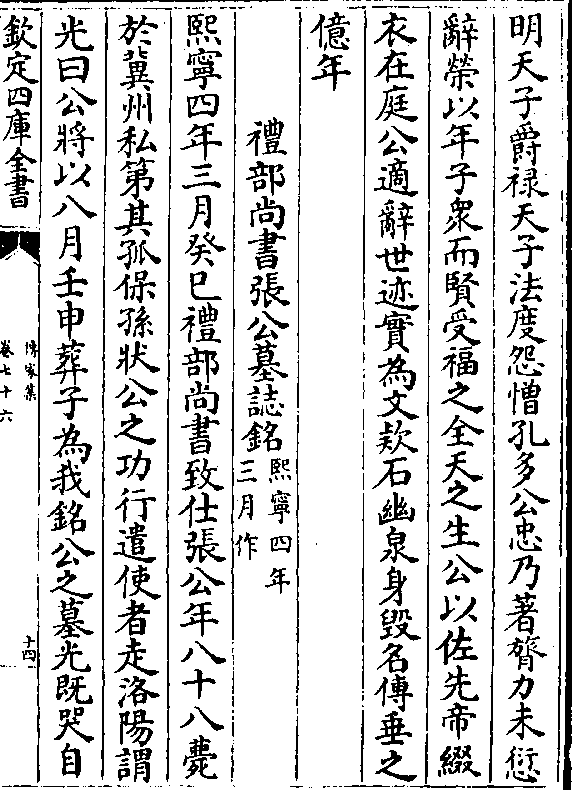 明天子爵禄天子法度怨憎孔多公忠乃著膂力未愆
辭榮以年子衆而賢受福之全天之生公以佐先帝綴
衣在庭公適辭世迹實為文欵石幽泉身毀名傳垂之
億年
禮部尚書張公墓誌銘熙寧四年三月作
熙寧四年三月癸巳禮部尚書致仕張公年八十八薨
於冀州私第其孤保孫狀公之功行遣使者走洛陽謂
光曰公將以八月壬申葬子為我銘公之墓光既哭自
欽定四庫全書
傳家集
卷七十六
十四